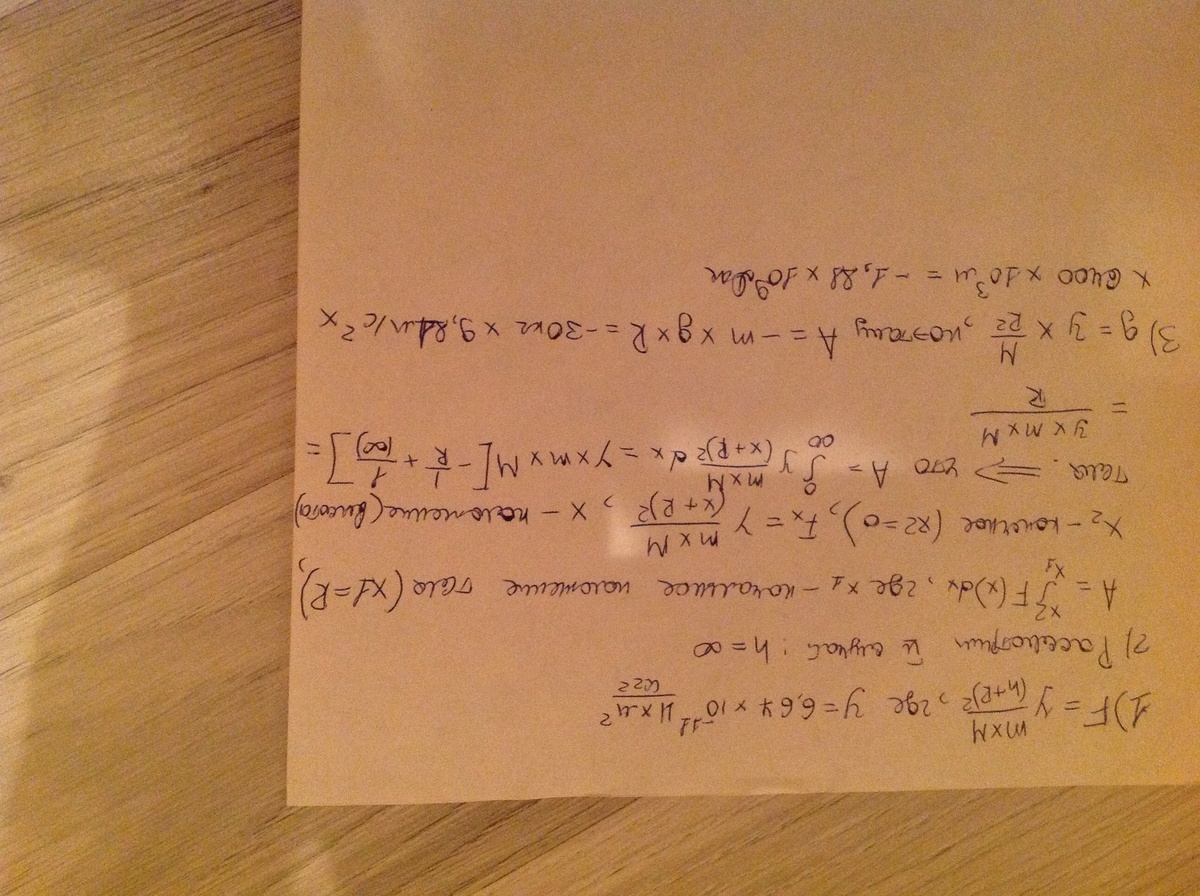 1) F = γ m×M/(h+R)², где γ = 6,67 × 10⁻¹¹ Н×м²/кг²
2) Рассмотрим й случай: h = ∞
A = ∫_{x₁}^{x₂} F(x)dx, где x₁ – начальное положение тела (x1=R),
x₂ – конечное (x2=0), Fₓ = γ m×M/(x+R)², x – положение (высота)
тела. => что A = ∫_{∞}^{0} γ m×M/(x+R)² dx = γ×m×M[-1/R + 1/(∞)] =
= γ×m×M/R
3) g = γ × M/R², поэтому A = -m×g×R = -30кг × 9,81м/с² ×
× 6400 × 10³м = -1,88 × 10⁹